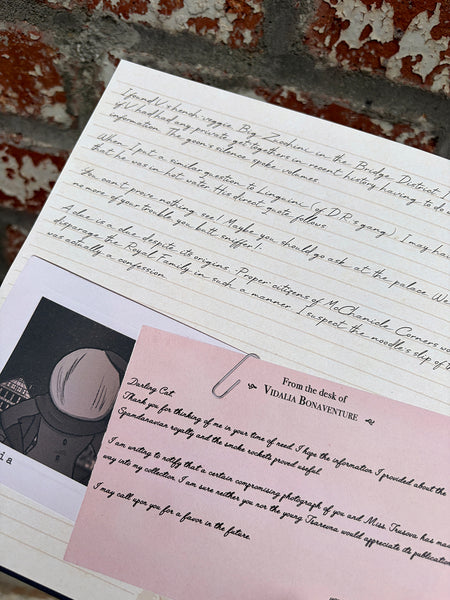 I found V's hench veggie, Big Zucchini in the Bridge District
if V had had any private get togethers in recent history having to do
information. The goon's silence spoke volumes.
When I put a similar question to Linguini (of D.R.'s gang), I may ha
that he was in hot water. His direct quote follows
You can't prove nothing see! Maybe you should go ask at the palace. We
no more of your trouble you butt sniffer!
A clue is a clue despite its origins. Proper citizens of McChamicle Corners wo
disparage the Royal Family in such a manner. I suspect the noodle's slip of th
was actually a confession
ia
From the desk of
VIDALIA BONAVENTURE
Darling Cat,
Thank you for thinking of me in your time of need. I hope the information I provided about the
Spandaravian royalty and the smoke rockets proved useful.
I am writing to notify that a certain compromising photograph of you and Miss. Trusova has mad
way into my collection. I am sure neither you nor the young Tsarsova would appreciate its publication
I may call upon you for a favor in the future.